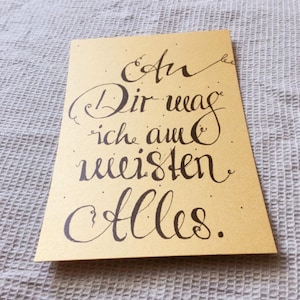 An
Dir mag
ich am
meisten
Alles.